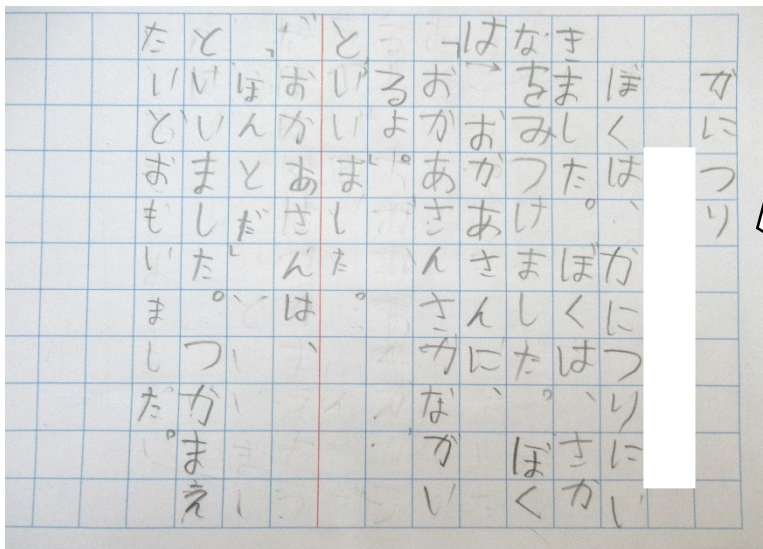 かにつり
ぼくは、かにつりにい
きました。ぼくは、さか
なをみつけました。ぼく
は、おかあさんに、
「おかあさんさかながい
るよ。」
といいました。
おかあさんは、
「ほんとだ」
といいました。つかまえ
たいとおもいました。